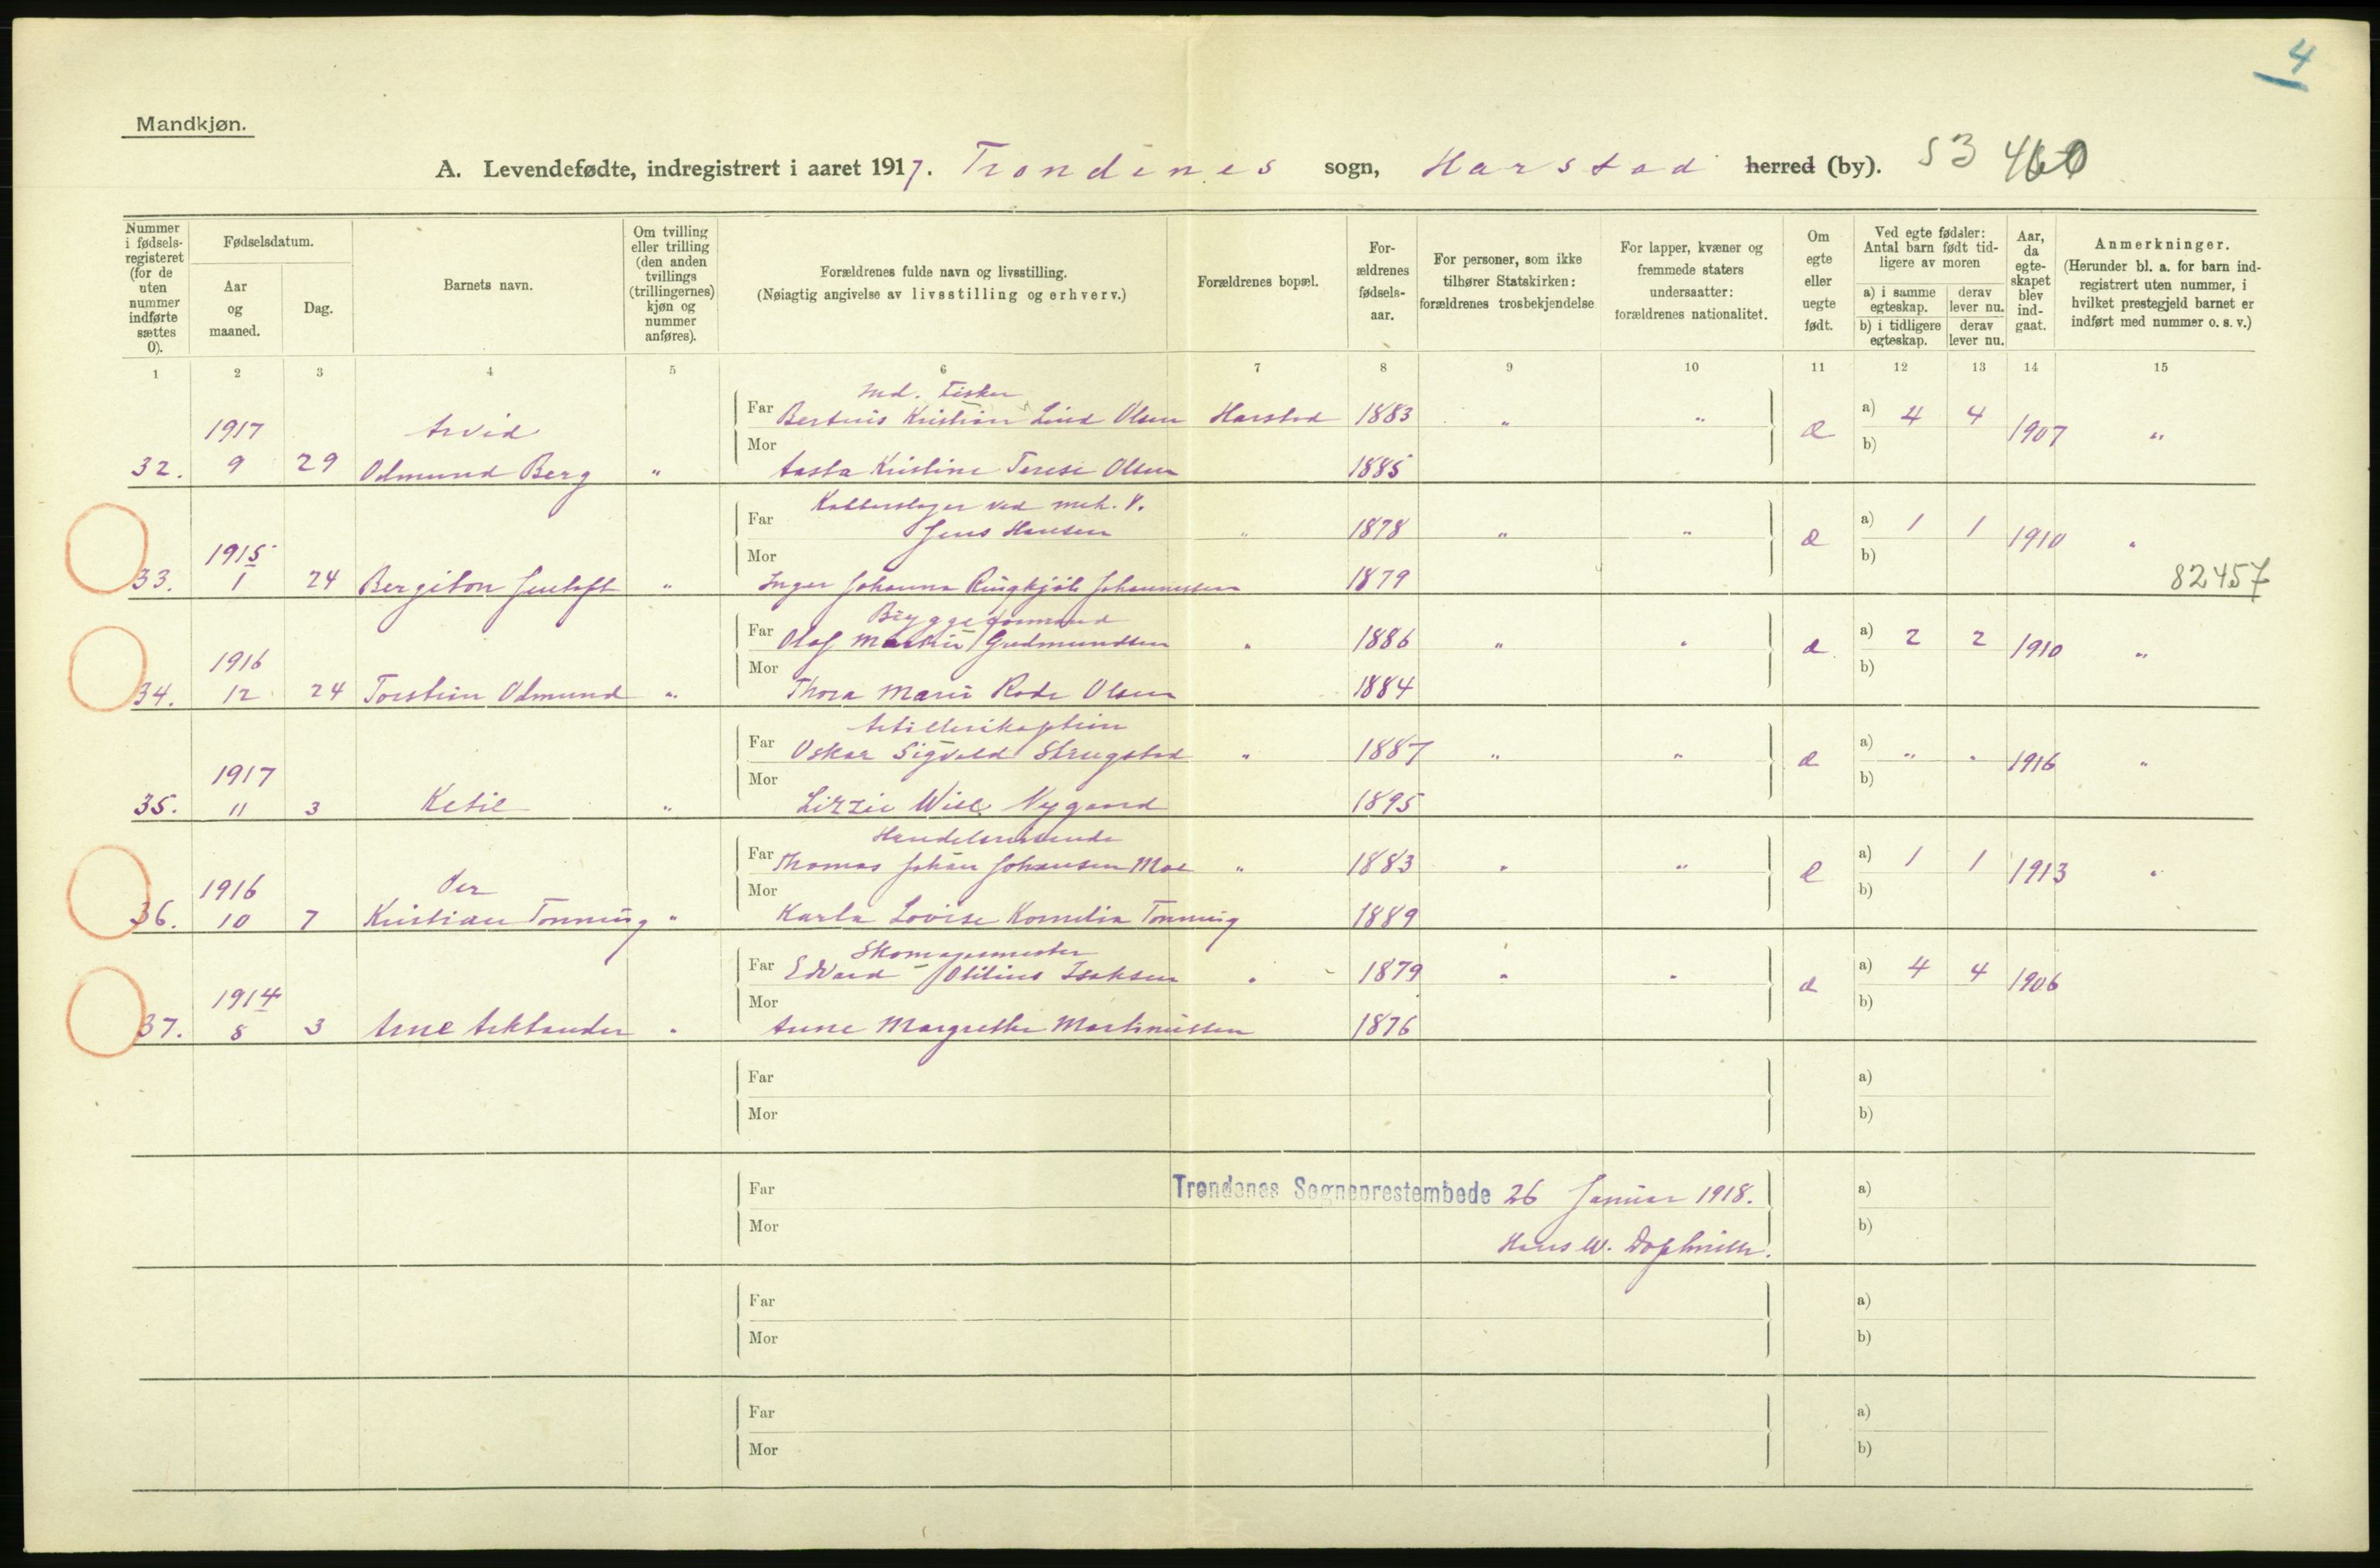 4
Mandkjøn.
A. Levendefødte, indregistrert i aaret 1917. Trondenes sogn, Harstad herred (by). 53 460
Nummer i fødsels-registeret (for de uten nummer indførte sættes 0).
Fødselsdatum.
Aar og maaned.
Dag.
Barnets navn.
Om tvilling eller trilling (den anden tvillings (trillingernes) kjøn og nummer anføres).
Forældrenes fulde navn og livsstilling.
(Nøiagtig angivelse av livsstilling og erhverv.)
Forældrenes bopæl.
For-ældrenes fødsels-aar.
For personer, som ikke tilhører Statskirken: forældrenes trosbekjendelse
For lapper, kvæner og fremmede staters undersaatter: forældrenes nationalitet.
Om egte eller uegte født.
Ved egte fødsler: Antal barn født tid-ligere av moren
a) i samme egteskap.
derav lever nu.
b) i tidligere egteskap.
derav lever nu.
Aar, da egte-skapet blev ind-gaat.
Anmerkninger.
(Herunder bl. a. for barn ind-registrert uten nummer, i hvilket prestegjeld barnet er indført med nummer o. s. v.)
1 2 3 4 5 6 7 8 9 10 11 12 13 14 15
Ind. Fisker
1917 Arvid Far Bertinis Kristian Lind Olsen Harstad 1883 " " æ a) 4 4 1907 "
32. 9 29 Odmund Berg " Mor Aasta Kristine Terese Olsen 1885 b)
Kobberslager ved mek. V.
1915 Far Jens Hansen " 1878 " " æ a) 1 1 1910 "
33. 1 24 Bergiton Jentoft " Mor Inger Johanna Ringkjøb Johannessen 1879 b) 82457
Bryggeformand
1916 Far Olaf Martin Gudmundsen " 1886 " " æ a) 2 2 1910 "
34. 12 24 Torstein Odmund " Mor Thora Marie Rode Olsen 1884 b)
Artillerikaptein
1917 Far Oskar Sigvald Strugstad " 1887 " " æ a) " " 1916 "
35. 11 3 Ketil " Mor Lizzie Wise Nygaard 1895 b)
Handelsreisende
1916 Per Far Thomas Johan Johansen Moe " 1883 " " æ a) 1 1 1913 "
36. 10 7 Kristian Tonning " Mor Karla Lovise Kornelia Tonning 1889 b)
Skomagermester
1914 Far Edvard Otilius Isaksen " 1879 " " æ a) 4 4 1906
37. 8 3 Arne " Mor Anne Margrethe Martinussen 1876 b)
Far a)
Mor b)
Far Trondenes Sogneprestembede 26 Januar 1918. a)
Mor Hans W. b)
Far a)
Mor b)
Far a)
Mor b)